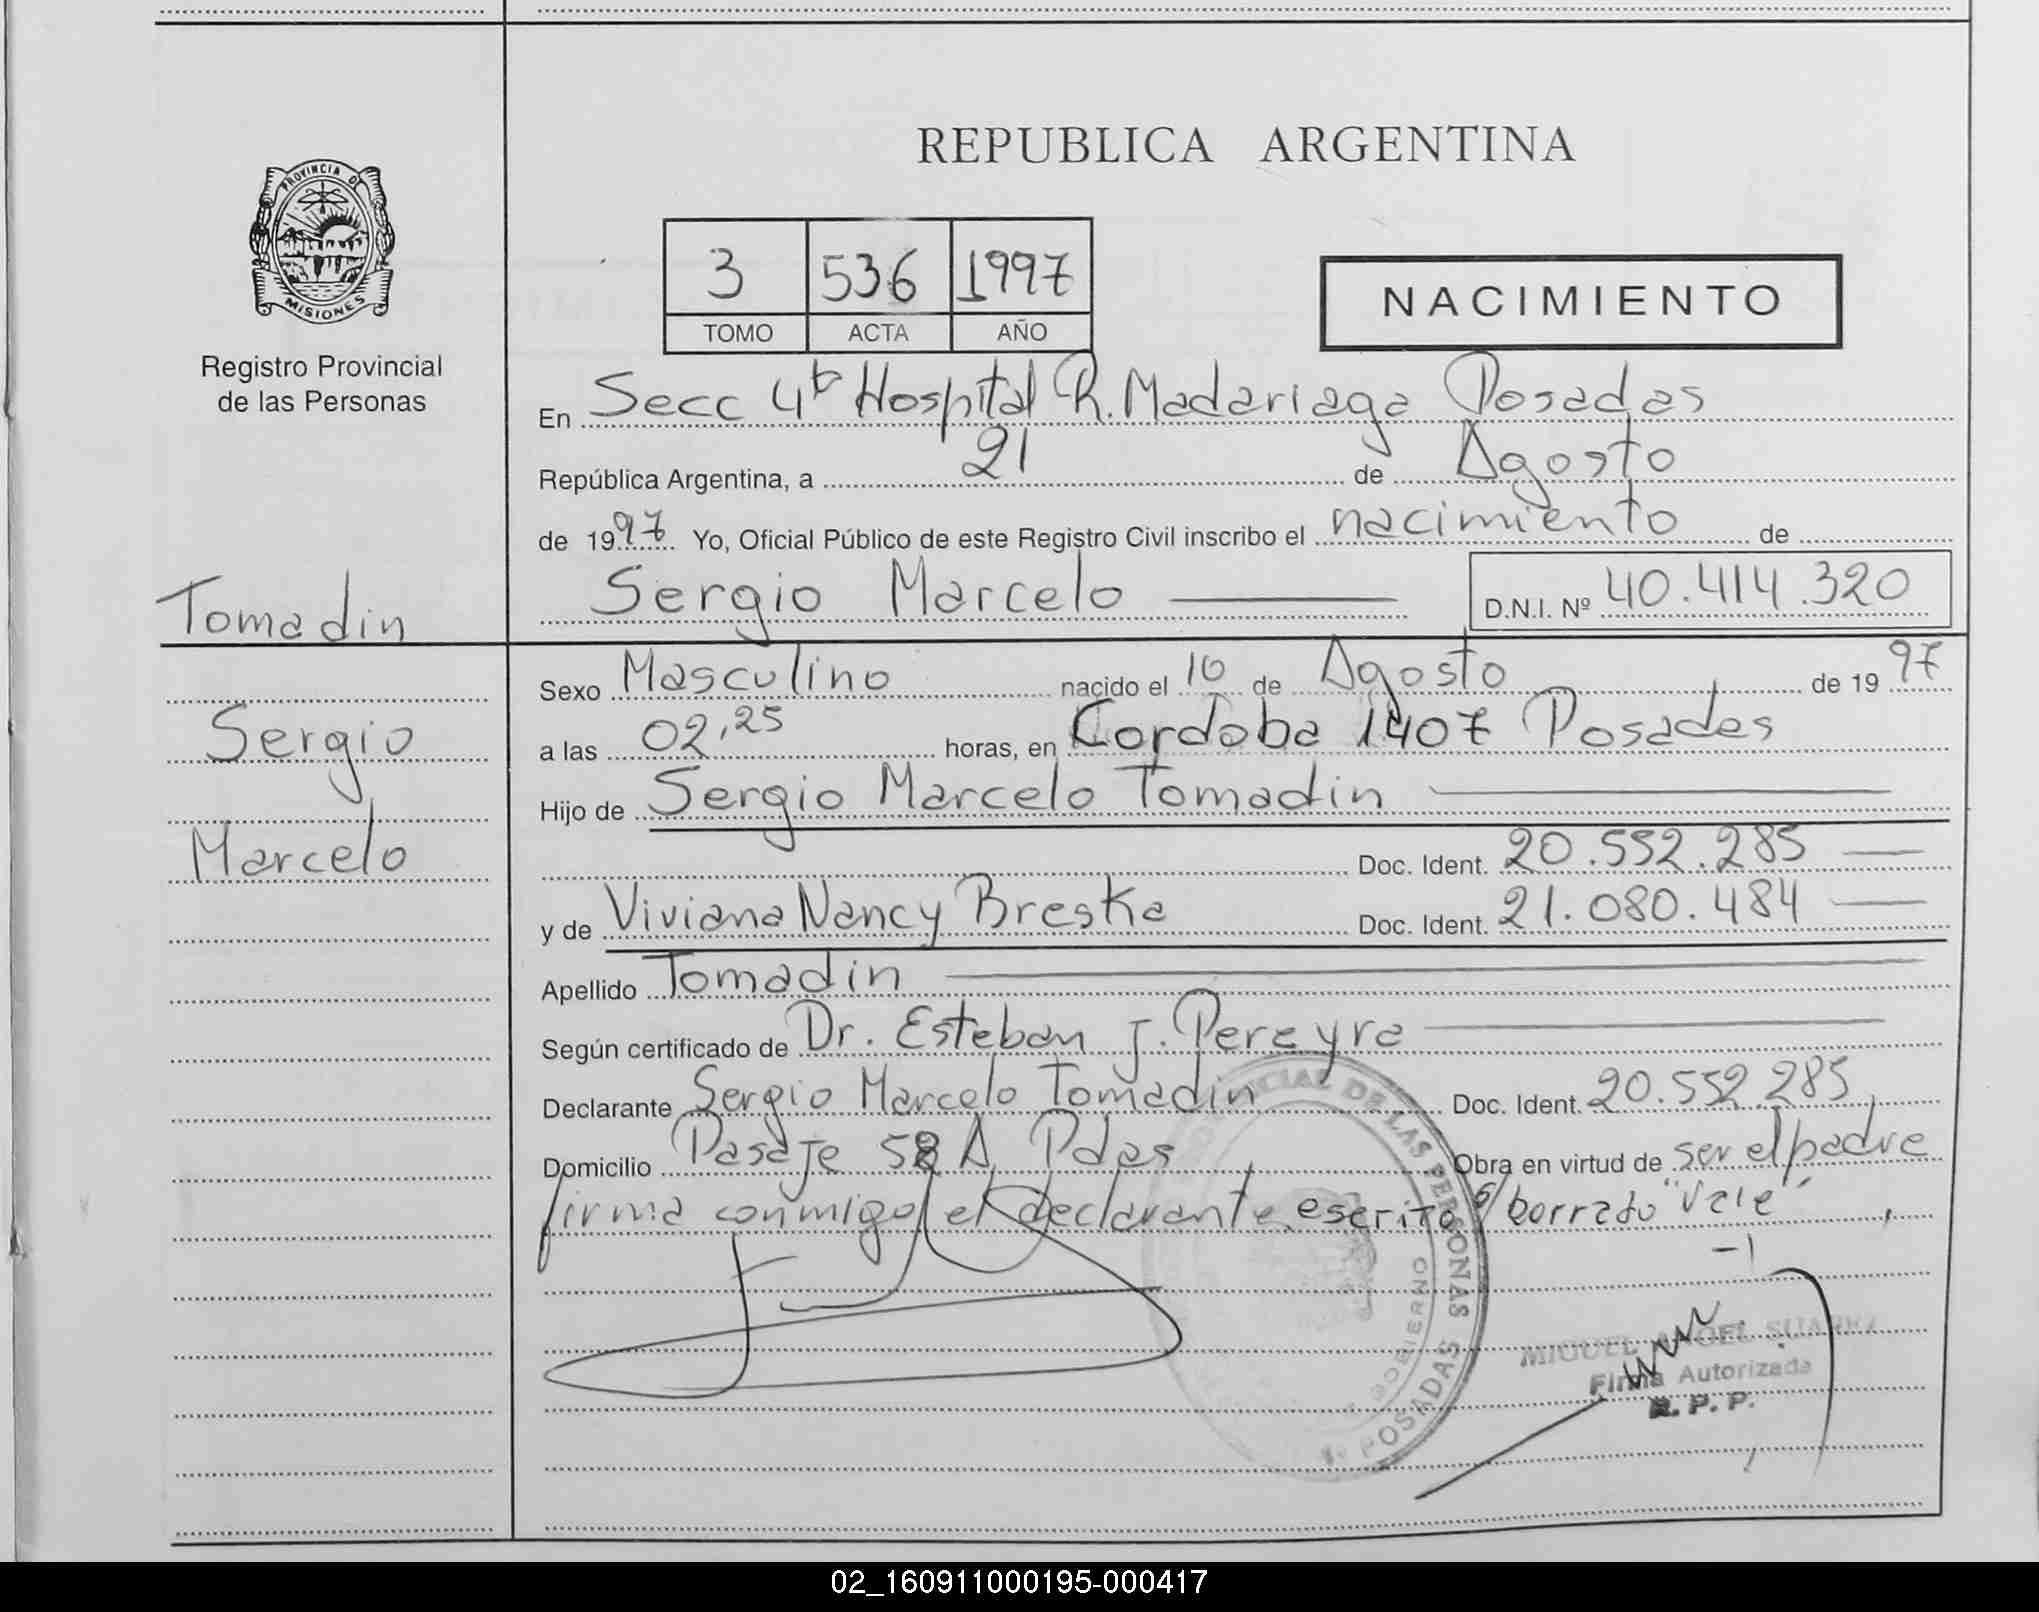 REPUBLICA ARGENTINA
PROVINCIA DE
MISIONES
Registro Provincial
de las Personas
3 536 1997
TOMO ACTA AÑO
NACIMIENTO
En Secc 4ta Hospital R. Madariaga Posadas
República Argentina, a 21 de Agosto
de 1997 Yo, Oficial Público de este Registro Civil inscribo el nacimiento de
Sergio Marcelo D.N.I. Nº 40.414.320
Tomadin
Sergio
Marcelo
Sexo Masculino nacido el 10 de Agosto de 1997
a las 02,25 horas, en Cordoba 1407 Posadas
Hijo de Sergio Marcelo Tomadin
Doc. Ident. 20.552.285
y de Viviana Nancy Breska Doc. Ident. 21.080.484
Apellido Tomadin
Según certificado de Dr. Esteban J. Pereyra
Declarante Sergio Marcelo Tomadin Doc. Ident. 20.552.285
Domicilio Pasaje 58 A Pdas Obra en virtud de ser el padre
firma conmigo el declarante escrito s/borrado "Vale"
DE LAS PERSONAS
GOBIERNO
POSADAS
MIGUEL ANGEL SUAREZ
Firma Autorizada
R. P. P.
02_160911000195-000417